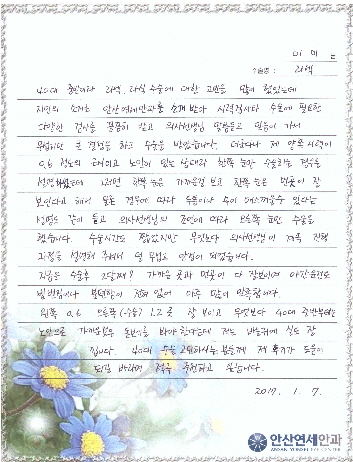 이 미 는
수술명 : 라섹
40대 중반이라 라섹, 라식 수술에 대한 고민을 많이 했었는데
지인의 소개로 안산연세안과를 소개 받아 시력검사와 수술에 필요한
다양한 검사를 꼼꼼히 받고 의사선생님 말씀듣고 믿음이 가서
큰 결정을 하고 수술을 받았습니다. 더군다나 제 양쪽 시력이
0.6 정도의 노안이 있는 상태라 한쪽 눈만 수술하는 경우를
설명하셨는데 한쪽 눈은 가까운걸 보고 한쪽 눈은 먼곳이 잘
보인다고 해서 모든 경우에 따라 수술이나 어려울수 있다는
설명도 같이 듣고 의사선생님의 조언에 따라 오른쪽 눈만 수술을
했습니다. 수술시간도 짧았지만 무엇보다 의사선생님이 계속 진행
과정을 설명해 주셔서 덜 무섭고 안정이 되었습니다.
지금은 수술후 2달째? 가까운 곳과 먼곳이 다 잘보이며 야간운전도
불편함이 전혀 없어 아주 많이 만족합니다.
왼쪽 0.6 오른쪽(수술) 1.2로 잘 보이고 무엇보다 40대 중반부터는
노안으로 가까운것을 돋보기를 봐야 한다는데 저는 바늘귀에 실도 잘
낍니다. 40대 수술 고민하시는 분들께 제 후기가 도움이
되길 바라며 적극 추천하고 싶습니다.
2017. 1. 7.
안산연세안과
ANSAN YONSEI EYE CENTER